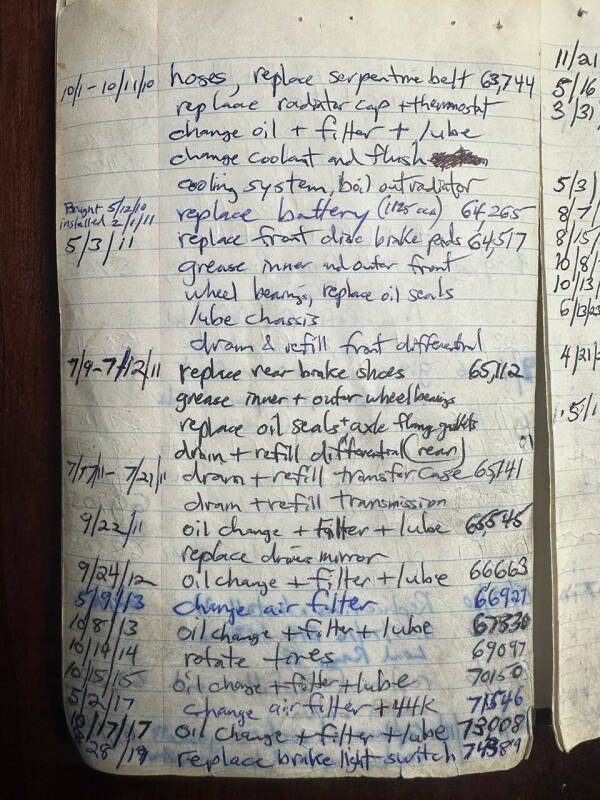 10/1-10/11/10 hoses, replace serpentine belt 63,744
replace radiator cap + thermostat
change oil + filter + lube
change coolant and flush
cooling system, boil out radiator
Bought 5/12/10
installed 2/1/11 replace battery (1125 cca) 64,265
5/3/11 replace front disc brake pads 64,517
grease inner and outer front
wheel bearings, replace oil seals
lube chassis
drain & refill front differential
7/9-7/12/11 replace rear brake shoes 65,112
grease inner + outer wheel bearings
replace oil seals + axle flang gaskets
drain + refill differential (rear)
7/17/11- 7/21/11 drain + refill transfer case 65,141
drain + refill transmission
9/22/11 oil change + filter + lube 65,545
replace drivers mirror
9/24/12 oil change + filter + lube 66663
5/9/13 change air filter 66927
10/8/13 oil change + filter + lube 67830
10/14/14 rotate tires 69097
10/15/15 oil change + filter + lube 70150
5/2/17 change air filter + 44K 71546
10/17/17 oil change + filter + lube 73008
28/19 replace brake light switch
11/21
5/16
3/31
5/3)
8/7/
8/15/
10/8/
10/13/
6/13/23
4/21/2
5/1